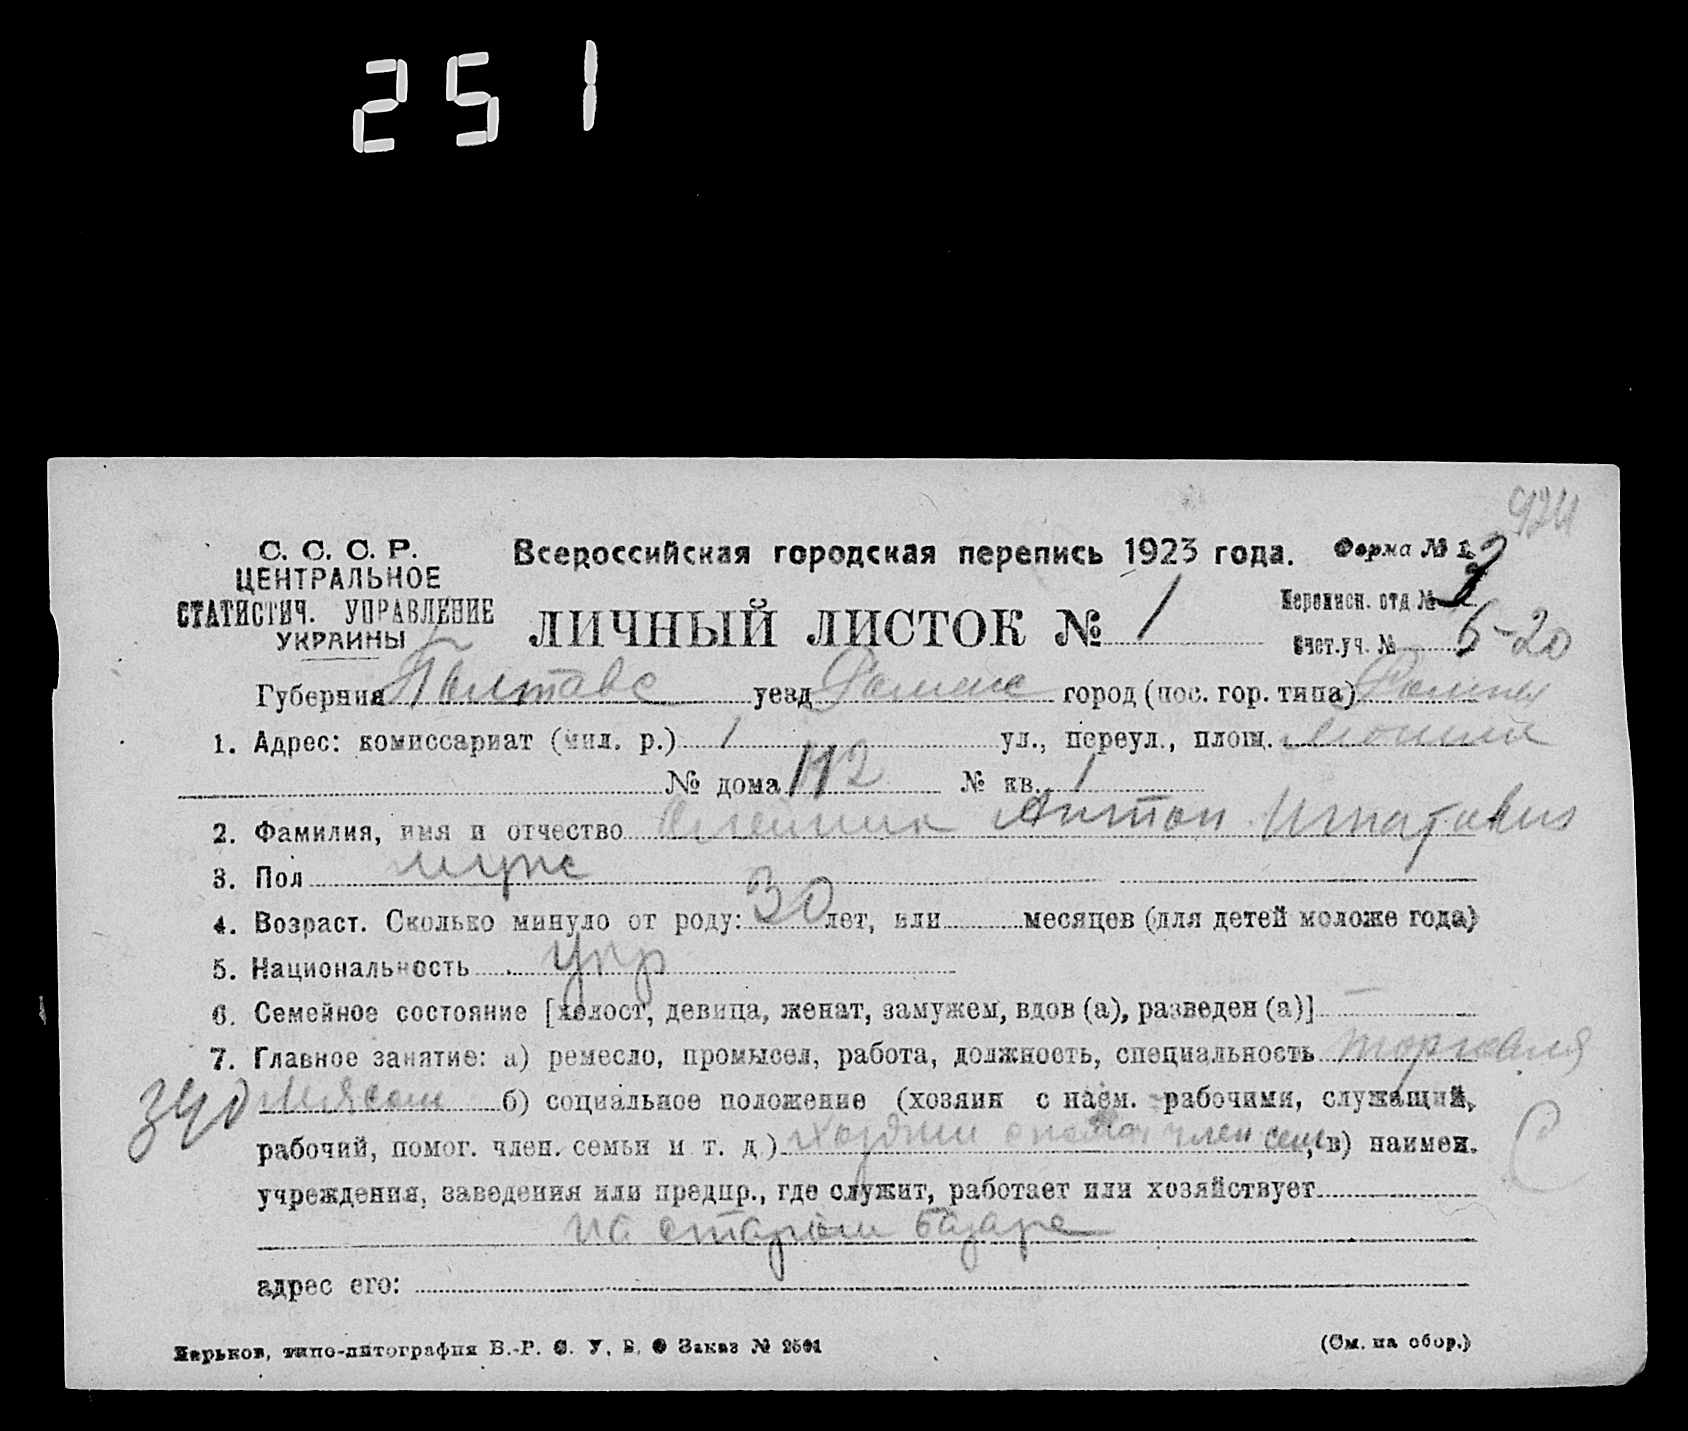 251
924
С. С. С. Р.
ЦЕНТРАЛЬНОЕ
СТАТИСТИЧ. УПРАВЛЕНИЕ
УКРАИНЫ
Всероссийская городская перепись 1923 года.
Форма № 1.
ЛИЧНЫЙ ЛИСТОК № 1
Переписн. отд №
Счет. уч. № 6-20
Губерния Полтавс уезд Роменс город (пос. гор. типа) Ромны
1. Адрес: комиссариат (мил. р.) 1 ул., переул., площ.
№ дома 112 № кв. 1
2. Фамилия, имя и отчество Антон Игнатович
3. Пол муж
4. Возраст. Сколько минуло от роду: 30 лет, или месяцев (для детей моложе года)
5. Национальность укр
6. Семейное состояние [холост, девица, женат, замужем, вдов (а), разведен (а)]
7. Главное занятие: а) ремесло, промысел, работа, должность, специальность торговля
мясом б) социальное положение (хозяин с наем. рабочими, служащий,
рабочий, помог. член. семьи и т. д.) член сем, в) наимен.
учреждения, заведения или предпр., где служит, работает или хозяйствует
на старом базаре
адрес его:
Харьков, типо-литография В.-Р. С. У. В. Ф Заказ № 2501
(См. на обор.)